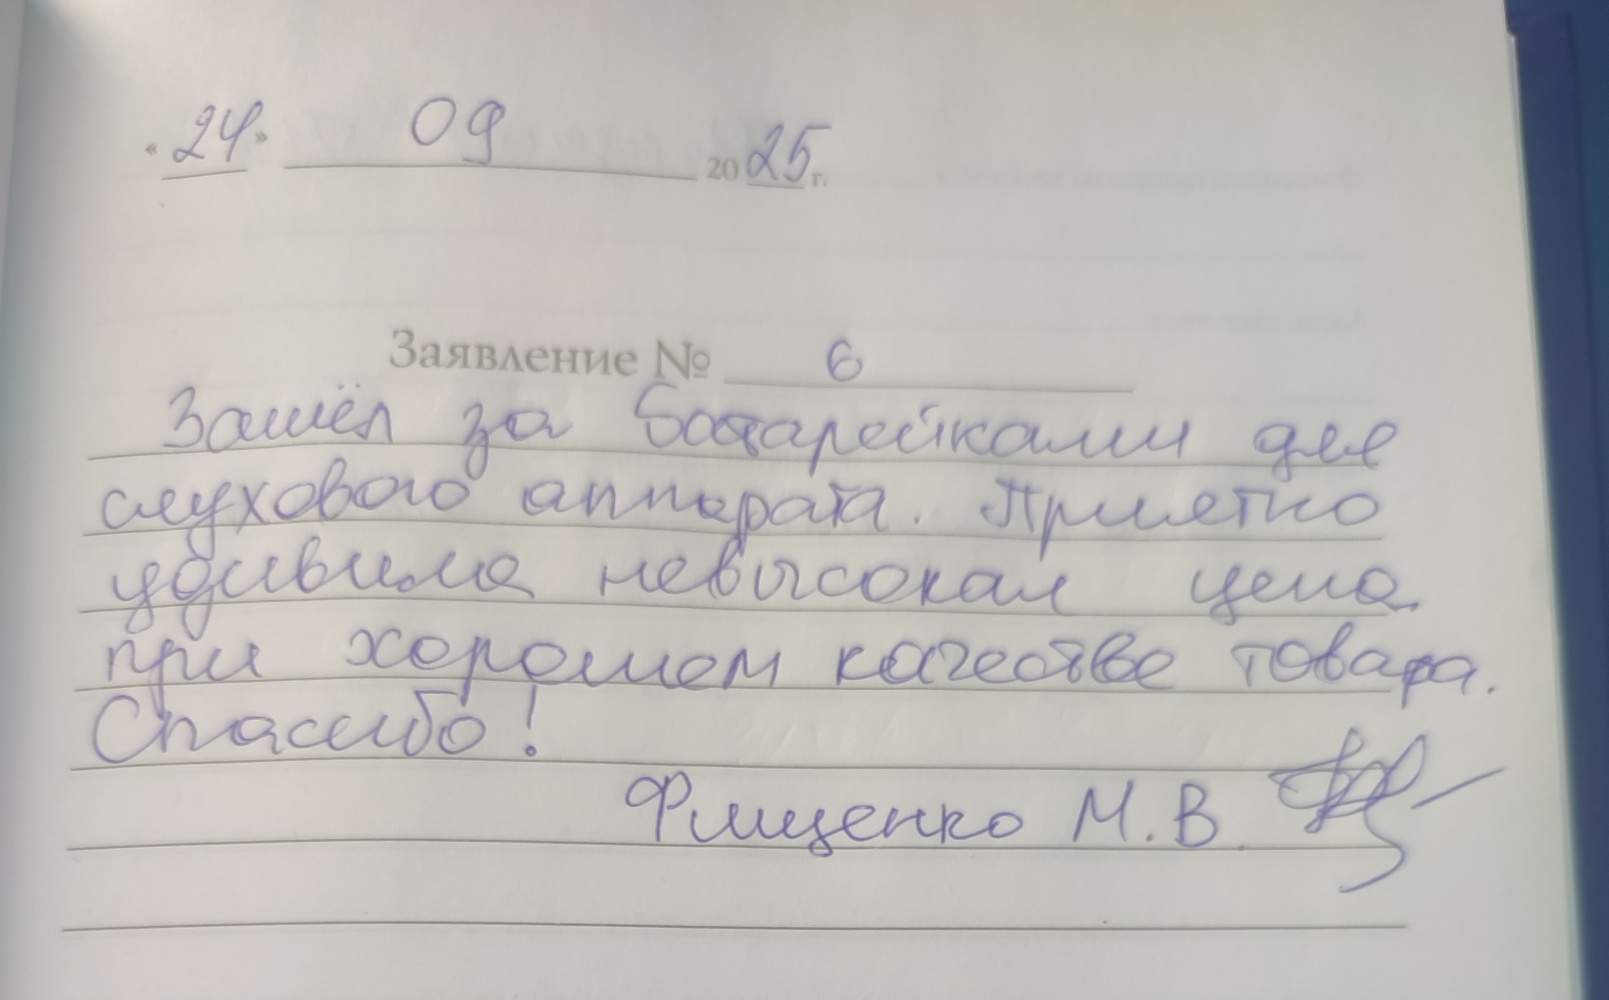 «24» 09 2025 г.
Заявление № 6
Зашёл за батарейками для
слухового аппарата. Приятно
удивила невысокая цена
при хорошем качестве товара.
Спасибо!
Фищенко М.В.